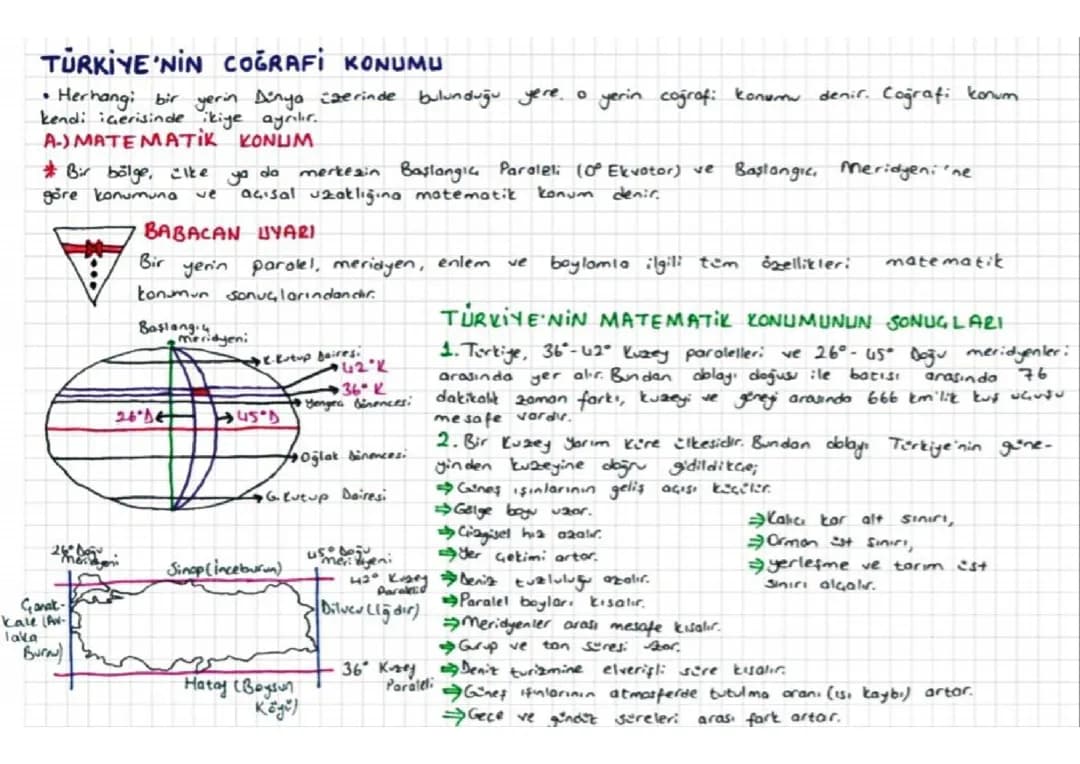 TÜRKİYE'NİN COĞRAFİ KONUMU
• Herhangi bir yerin Dünya üzerinde bulunduğu yere o yerin coğrafi konumu denir. Coğrafi konum
kendi içerisinde ikiye ayrılır.
A-) MATEMATİK KONUM
* Bir bölge, ülke ya da merkezin Başlangıç Paraleli (0° Ekvator) ve Başlangıç Meridyeni'ne
göre konumuna ve açısal uzaklığına matematik konum denir.
BABACAN UYARI
Bir yerin paralel, meridyen, enlem ve boylamla ilgili tüm özellikleri matematik
konumun sonuçlarındandır.
Başlangıç
meridyeni
K. Kutup Dairesi
42°K
36°K
Yengeç Dönencesi
26°D
45°D
Oğlak Dönencesi
G. Kutup Dairesi
26° Doğu
meridyeni
45° Doğu
meridyeni
Sinop (İnceburun)
42° Kuzey
Paraleli
Çanak-
kale (Av-
laka
Burnu)
Dilucu (Iğdır)
36° Kuzey
Paraleli
Hatay (Beysun
Köyü)
TÜRKİYE'NİN MATEMATİK KONUMUNUN SONUÇLARI
1. Türkiye, 36°-42° Kuzey paralelleri ve 26°-45° Doğu meridyenleri
arasında yer alır. Bundan dolayı doğusu ile batısı arasında 76
dakikalık zaman farkı, kuzeyi ve güneyi arasında 666 km'lik kuş uçuşu
mesafe vardır.
2. Bir Kuzey Yarım Küre ülkesidir. Bundan dolayı Türkiye'nin güne-
yinden kuzeyine doğru gidildikçe;
⇒ Güneş ışınlarının geliş açısı küçülür.
⇒ Gölge boyu uzar.
⇒ Çizgisel hız azalır.
⇒ Yer çekimi artar.
⇒ Deniz tuzluluğu azalır.
⇒ Paralel boyları kısalır.
⇒ Meridyenler arası mesafe kısalır.
⇒ Gurup ve tan süresi uzar.
⇒ Deniz turizmine elverişli süre kısalır.
⇒ Güneş ışınlarının atmosferde tutulma oranı (ısı kaybı) artar.
⇒ Gece ve gündüz süreleri arası fark artar.
⇒ Kalıcı kar alt sınırı,
⇒ Orman üst sınırı,
⇒ yerleşme ve tarım üst
sınırı alçalır.